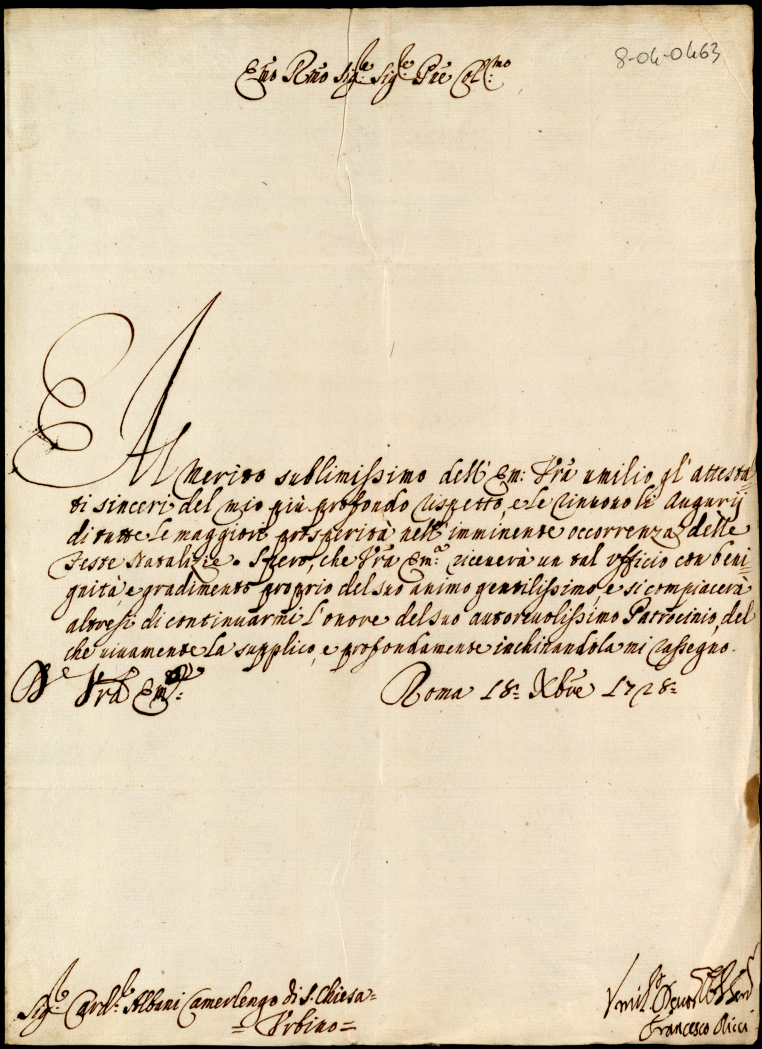 8-04-0463
Emo Rmo Sig.re Sig.re Pne Col.mo
Al merito sublimissimo dell' Em: Vra umilio gl' attesta-
ti sinceri del mio più profondo rispetto, e le rinnuovo li Augurij
di tutte le maggiori prosperità nell' imminente occorrenza delle
Feste Natalizie. Spero, che Vra Em: riceverà un tal ufficio con beni
gnità, e gradimento proprio del suo animo gentilissimo, e si compiacerà
altresì di continuarmi l'onore del suo autorevolissimo Patrocinio, del
che vivamente la supplico, e profondamente inchinandola mi rassegno.
Vra Em: Roma 18: Xbre 1728:
Sig.re Card.le Albani Camerlengo di S. Chiesa=
=Urbino=
Umil.o
Francesco Ricci